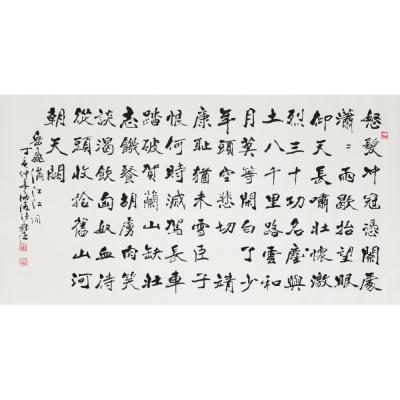 怒髮冲冠憑闌處
瀟〻雨歇抬望眼
仰天長嘯壯懷激
烈三十功名塵與
土八千里路雲和
月莫等閒白了少
年頭空悲切 靖
康耻猶未雪臣子
恨何時滅駕長車
踏破賀蘭山缺壯
志饑餐胡虜肉笑
談渴飲匈奴血待
從頭收拾舊山河
朝天闕
岳飛滿江红詞
丁亥仲春